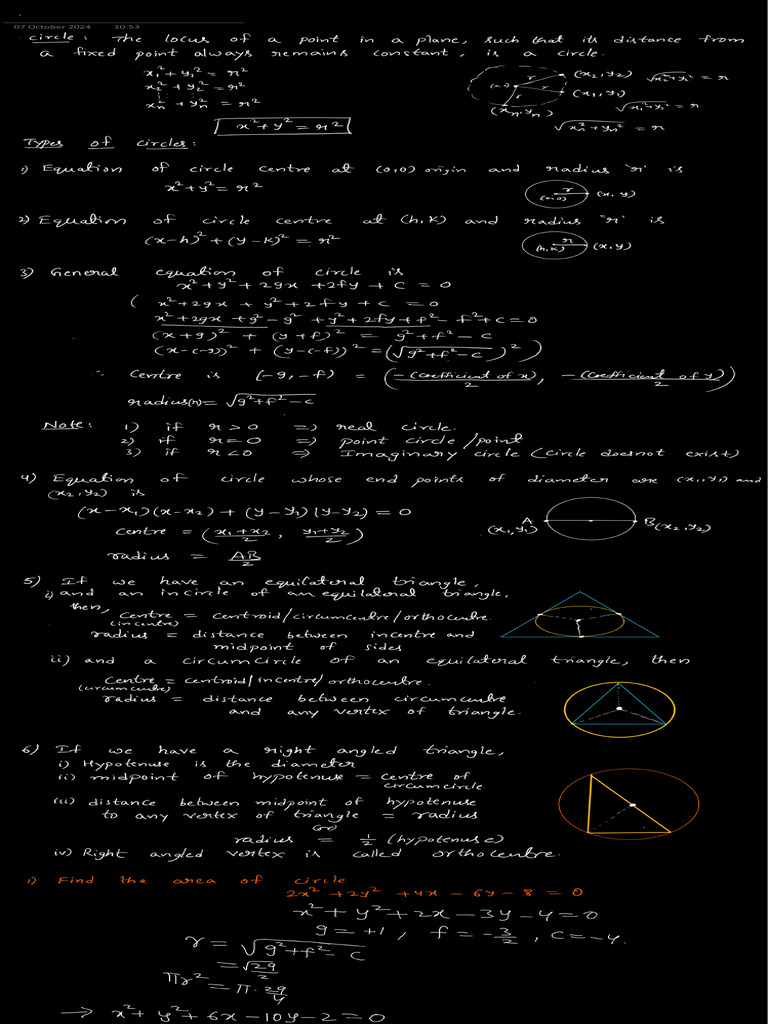 07 October 2024 10:53
circle: The locus of a point in a plane, such that its distance from
a fixed point always remains constant, is a circle.
x₁² + y₁² = r²
x₂² + y₂² = r²
xₙ² + yₙ² = r²
x² + y² = r²
(0,0) r r r
(x₂, y₂) √x₂²+y₂² = r
(x₁, y₁) √x₁²+y₁² = r
(xₙ, yₙ) √xₙ²+yₙ² = r
Types of circles:
1) Equation of circle centre at (0,0) origin and radius "r" is
x² + y² = r²
(0,0) r (x, y)
2) Equation of circle centre at (h,k) and radius "r" is
(x-h)² + (y-k)² = r²
(h,k) r (x,y)
3) General equation of circle is
x² + y² + 2gx + 2fy + c = 0
( x² + 2gx + y² + 2fy + c = 0
x² + 2gx + g² - g² + y² + 2fy + f² - f² + c = 0
(x + g)² + (y + f)² = g² + f² - c
(x-(-g))² + (y-(-f))² = (√g²+f²-c)² )
∴ centre is (-g, -f) = (-(coefficient of x)/2, -(coefficient of y)/2)
radius(r) = √g²+f²-c
Note: 1) if r > 0 => real circle.
2) if r = 0 => point circle/point
3) if r < 0 => Imaginary circle (circle doesnot exist)
4) Equation of circle whose end points of diameter are (x₁,y₁) and
(x₂, y₂) is
(x-x₁)(x-x₂) + (y-y₁)(y-y₂) = 0
centre = (x₁+x₂/2, y₁+y₂/2)
radius = AB/2
A (x₁,y₁) B (x₂,y₂)
5) If we have an equilateral triangle,
i) and an incircle of an equilateral triangle,
then, centre = centroid/circumcentre/orthocentre.
(incentre)
radius = distance between incentre and
midpoint of sides
ii) and a circumcircle of an equilateral triangle, then
centre = centroid/incentre/orthocentre.
(circumcentre)
radius = distance between circumcentre
and any vertex of triangle.
6) If we have a right angled triangle,
i) Hypotenuse is the diameter
(ii) midpoint of hypotenuse = centre of
circumcircle
(iii) distance between midpoint of hypotenuse
to any vertex of triangle = radius
(or)
radius = 1/2 (hypotenuse)
iv) Right angled vertex is called orthocentre.
1) Find the area of circle
2x² + 2y² + 4x - 6y - 8 = 0
x² + y² + 2x - 3y - 4 = 0
g = +1, f = -3/2, c = -4.
r = √g²+f²-c
= √29/2
πr² = π·29/4
→ x² + y² + 6x - 10y - 2 = 0